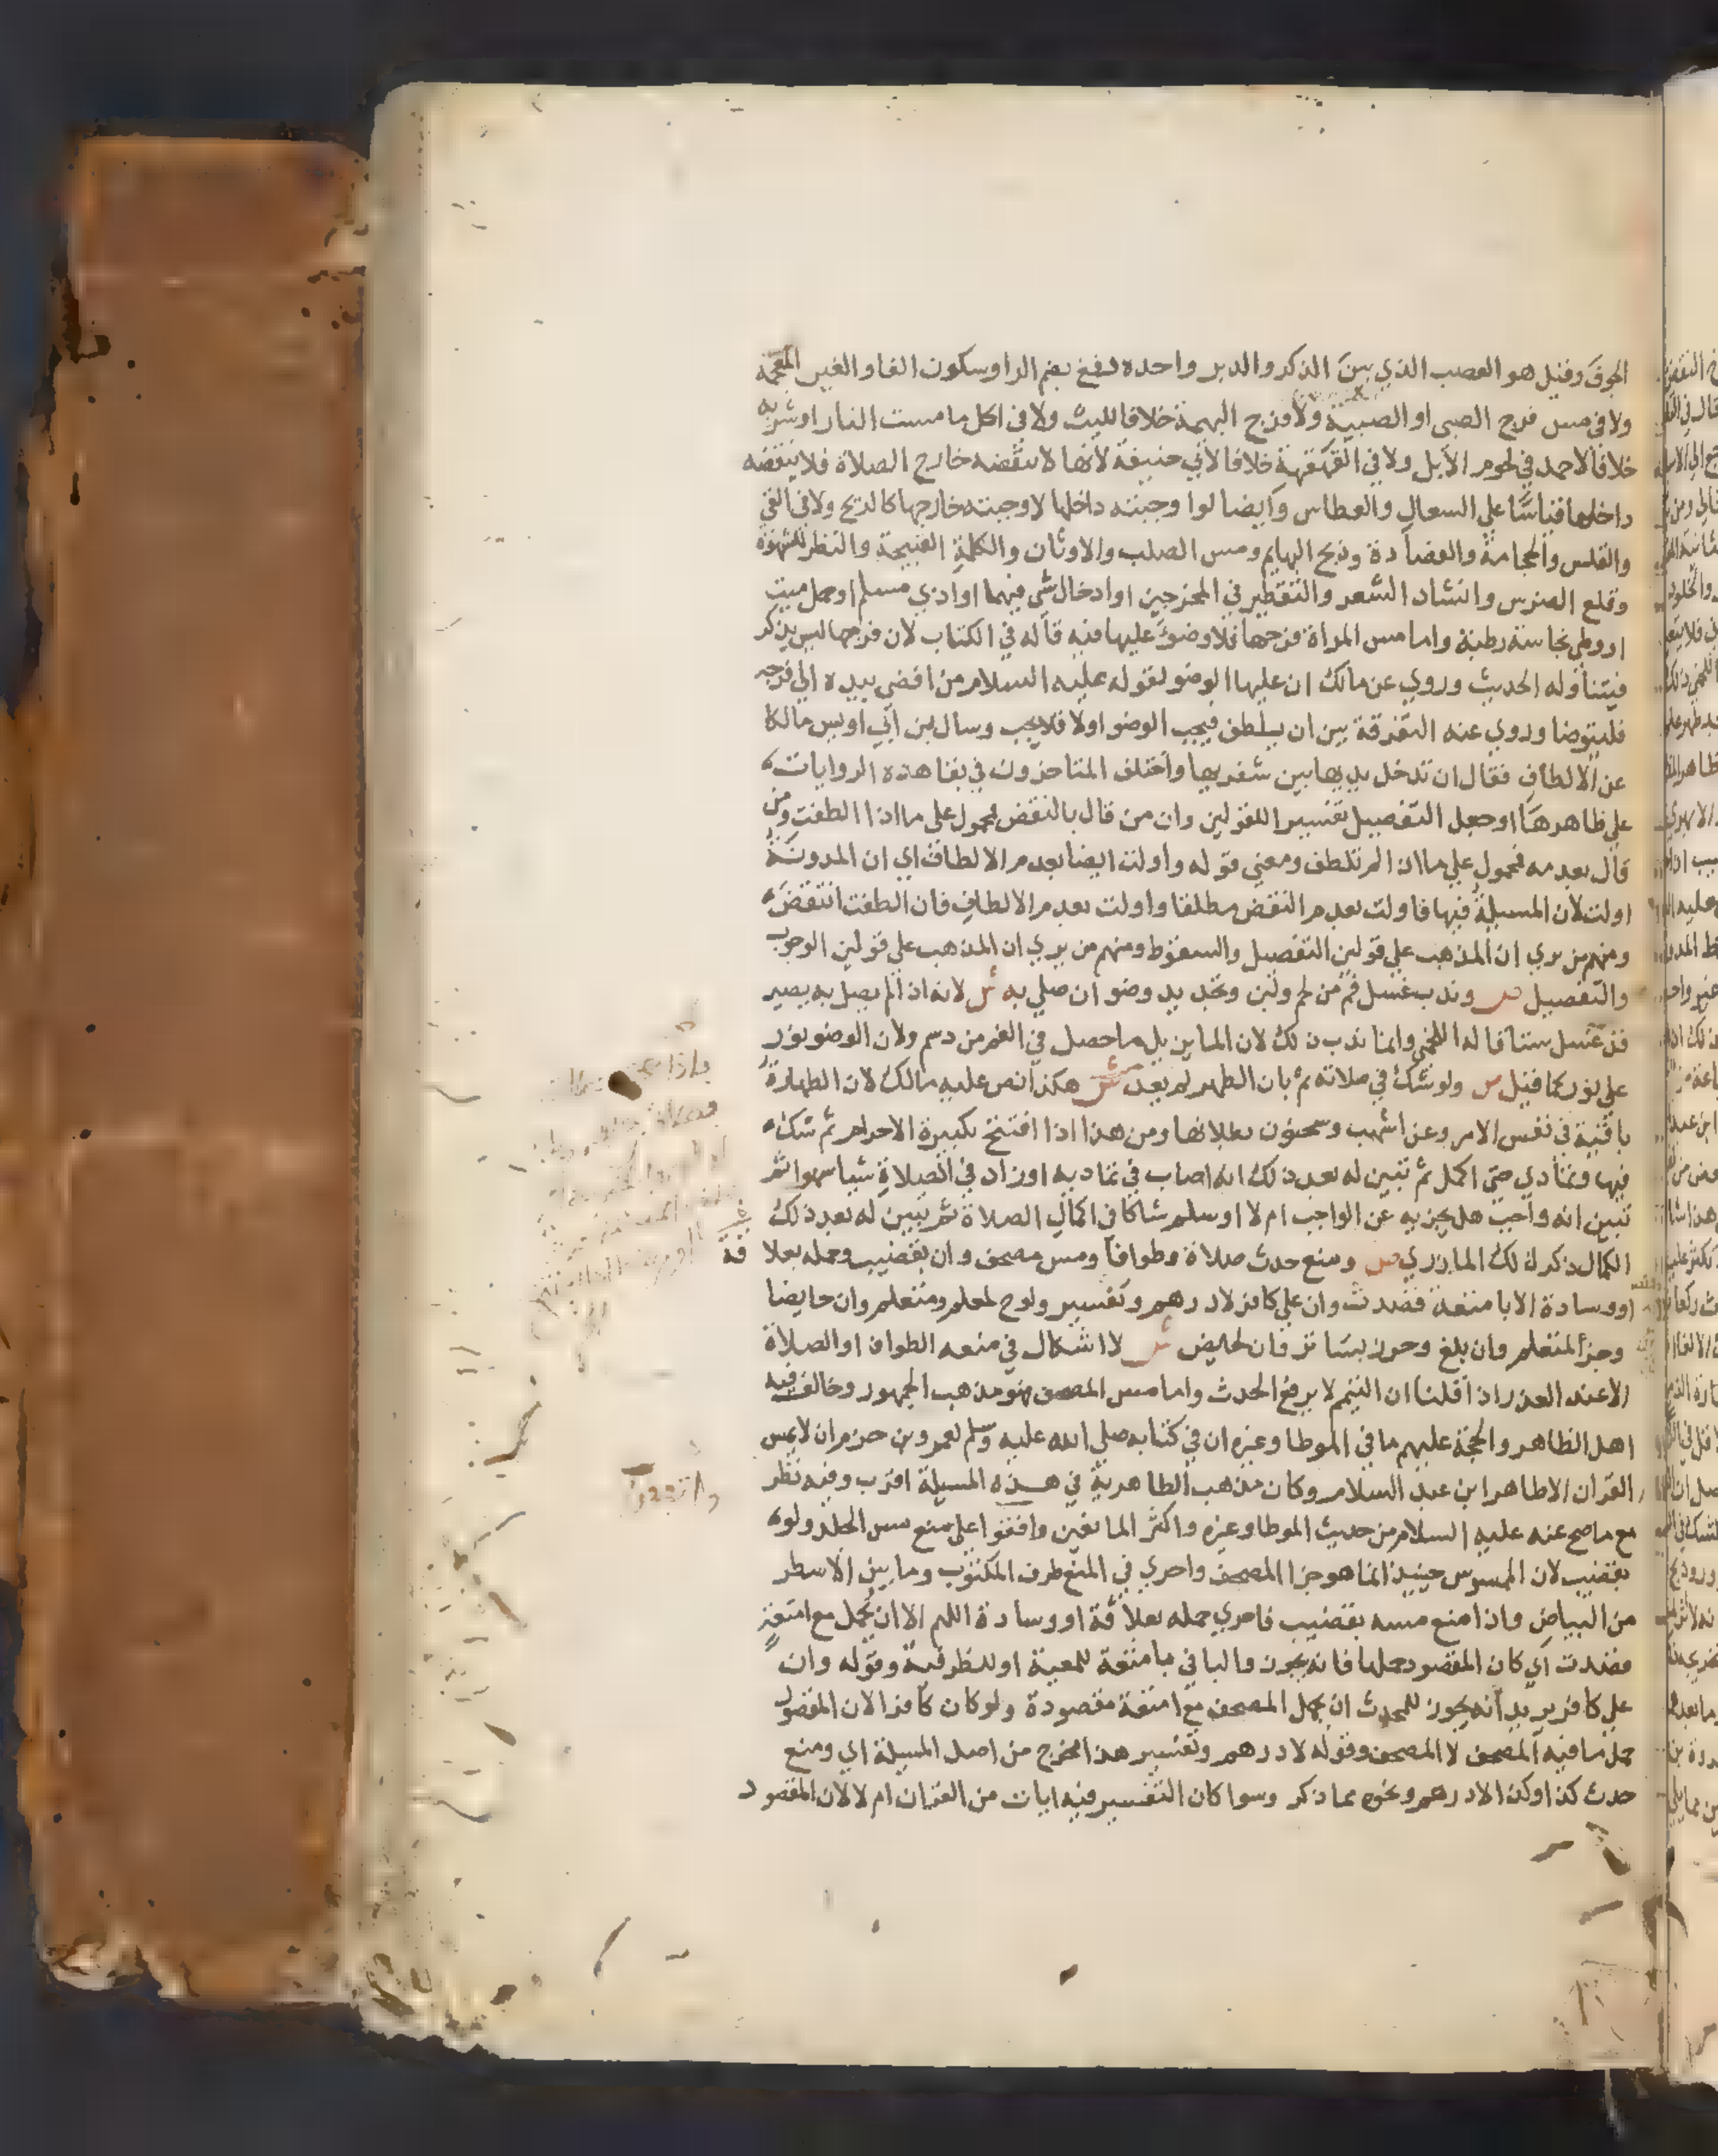 الجوف وقيل هو العصب الذي بين الذكر والدبر واحده رفغ بضم الرا وسكون الفا والغين المعجمة
ولا في مس فرج الصبي او الصبية ولا فرج البهيمة خلافا لليث ولا في اكل ما مست النار او شربه
خلافا لاحمد في لحوم الابل ولا في القهقهة خلافا لابي حنيفة لانها لا تنقضه خارج الصلاة فلا تنقضه
داخلها قياسا على السعال والعطاس وايضا لوا وجبته داخلها لاوجبته خارجها كالريح ولا في القي
والقلس والحجامة والفصادة وذبح البهايم ومس الصلب والاوثان والكلمة القبيحة والنظر لشهوة
وقلع الضرس وانشاد الشعر والتقطير في المخرجين او ادخال شي فيهما او اذي مسلم او حمل ميت
او وطي نجاسة رطبة واما مس المراة فرجها فلا وضوَ عليها فيه قاله في الكتاب لان فرجها ليس بذكر
فيتناوله الحديث وروي عن مالك ان عليها الوضو لقوله عليه السلام من افضي بيده الي فرجه
فليتوضا وروي عنه التفرقة بين ان يلطف فيجب الوضو اولا فلا يجب وسال بن ابي اويس مالكا
عن الالطاف فقال ان تدخل يديها بين شفريها واختلف المتاخرون في بقا هذه الروايات
علي ظاهرها او جعل التفصيل تفسيرا للقولين وان من قال بالنقض محمول علي ما اذا الطفت ومن
قال بعدمه فمحمول علي ما اذا لم تلطف ومعني قوله واولت ايضا بعدم الالطاف اي ان المدونة
اولت لان المسيلة فيها فاولت بعدم النقض مطلقا واولت بعدم الالطاف فان الطفت انتقض
ومنهم من يري ان المذهب علي قولين التفصيل والسقوط ومنهم من يري ان المذهب علي قولين الوجوب
والتفصيل ص وندب غسل فم من لحم ولبن وتجديد وضو ان صلي به ش لانه اذا لم يصل به يصير
قد غسل ستا قاله اللخمي وانما ندب ذلك لان الما يزيل ما حصل في الفم من دسم ولان الوضو نور
علي نور كما قيل ص ولو شك في صلاته ثم بان الطهر لم يعد ش هكذا نص عليه مالك لان الطهارة
باقية في نفس الامر وعن اشهب وسحنون بطلانها ومن هذا اذا افتتح بكبيرة الاحرام ثم شك
فيها وتمادي حتي اكمل ثم تبين له بعد ذلك انه اصاب في تماديه او زاد في الصلاة شيا سهوا ثم
تبين انه واجب هل يجزيه عن الواجب ام لا او سلم شاكا في اكمال الصلاة ثم تبين له بعد ذلك
الكمال ذكر ذلك المازري ص ومنع حدث صلاة وطوافا ومس مصحف وان بقضيب وحمله بعلاقة
او وسادة الا بامتعة قصدت وان علي كافر لا درهم وتفسير ولوح لمعلم ومتعلم وان حايضا
وجز لمتعلم وان بلغ وحرز بساتر وان لحايض ش لا اشكال في منعه الطواف او الصلاة
الا عند العذر اذا قلنا ان التيمم لا يرفع الحدث واما مس المصحف فهو مذهب الجمهور وخالف فيه
اهل الظاهر والحجة عليهم ما في الموطا وغيره ان في كتابه صلي الله عليه وسلم لعمرو بن حزم ان لا يمس
القران الا طاهر ابن عبد السلام وكان مذهب الظاهرية في هذه المسيلة اقرب وفيه نظر
مع ما صح عنه عليه السلام من حديث الموطا وغيره واكثر المانعين وافقوا علي منع مس الجلد ولو
بقضيب لان الممسوس حينيذ انما هو جزا المصحف واحري في المنع طرف المكتوب وما بين الاسطر
من البياض واذا منع مسه بقضيب فاحري حمله بعلاقة او وسادة اللهم الا ان يحمل مع امتعة
قصدت اي كان المقصود حملها فانه يجوز والبا في بامتعة للمعية او للظرفية وقوله وان
علي كافر يريد انه يجوز للمحدث ان يحمل المصحف مع امتعة مقصودة ولو كان كافرا لان المقصود
حمل ما فيه المصحف لا المصحف وقوله لا درهم وتفسير هذا مخرج من اصل المسيلة اي ومنع
حدث كذا وكذا لا درهم ونحوه مما ذكر وسوا كان التفسير فيه ايات من القران ام لا لان المقصود